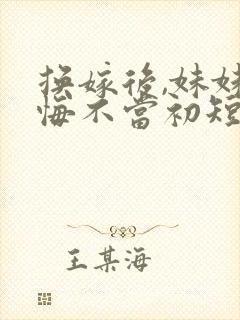 換嫁後,妹妹
悔不當初短
王某海